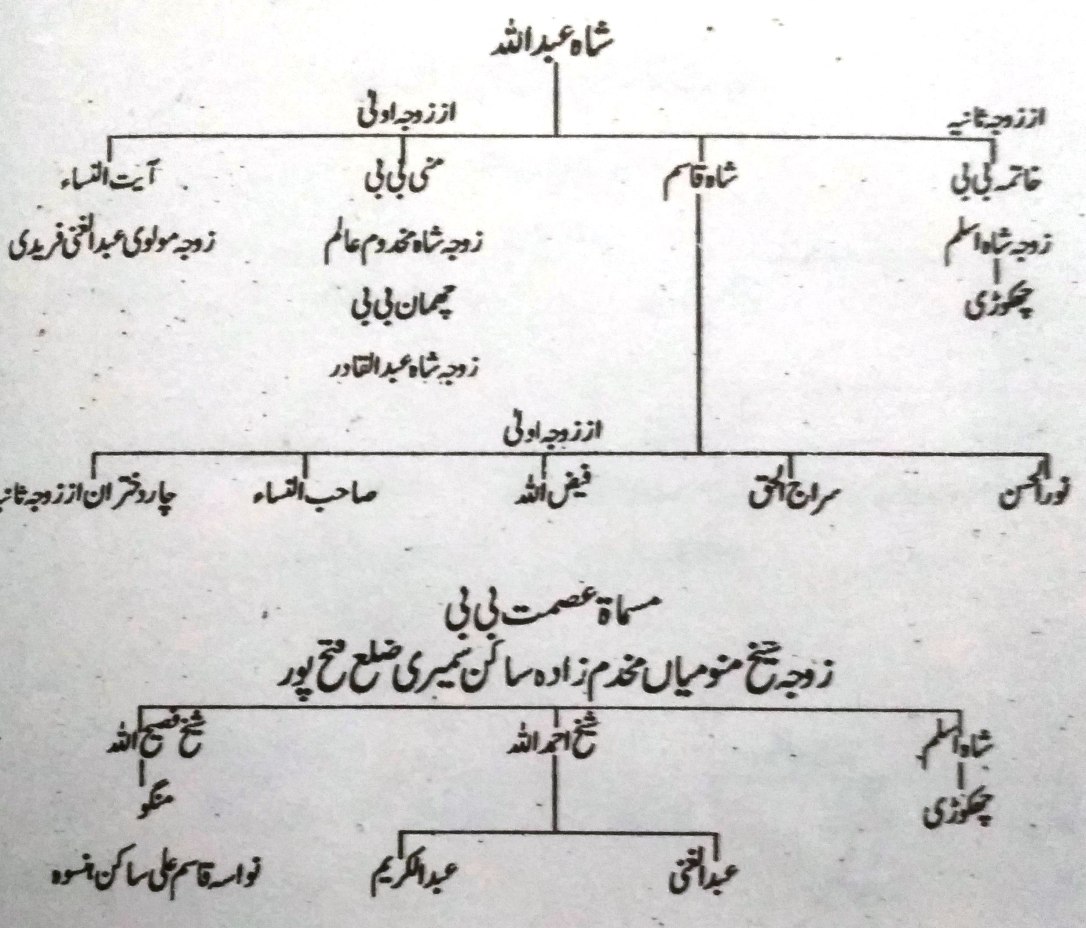 شاہ عبداللہ
از زوجہ ثانیہ از زوجہ اولیٰ
خاتمہ بی بی شاہ قاسم منی بی بی آیت النساء
زوجہ شاہ اسلم زوجہ شاہ مخدوم عالم زوجہ مولوی عبدالغنی فریدی
چھکوڑی چھمان بی بی
زوجہ شاہ عبدالقادر
از زوجہ اولیٰ
نورالحسن سراج الحق فیض اللہ صاحب النساء چار دختران از زوجہ
مسماۃ عصمت بی بی
زوجہ شیخ منومیاں مخدم زادہ ساکن نمیری ضلع فتح پور
شاہ اسلم شیخ احمد اللہ شیخ فصیح اللہ
چھکوڑی منگو
عبدالغنی عبدالکریم نواسہ قاسم علی ساکن انسوہ